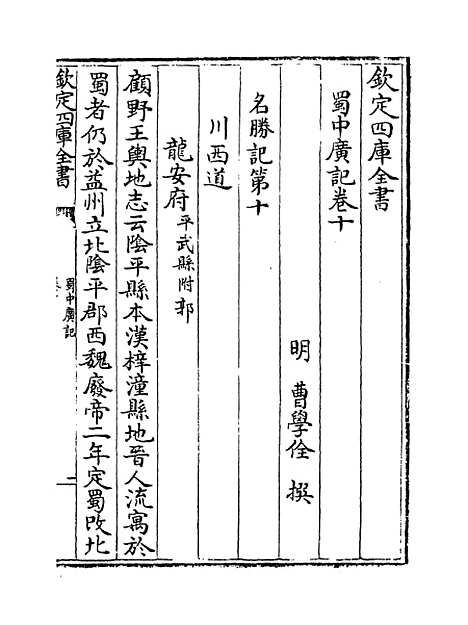 欽定四庫全書
蜀中廣記卷十
明 曹學佺 撰
名勝記第十
川西道
龍安府平武縣附郭
顧野王輿地志云陰平縣本漢梓潼縣地晉人流寓於
蜀者仍於益州立北陰平郡西魏廢帝二年定蜀改北
欽定四庫全書
蜀中廣記
卷十
一